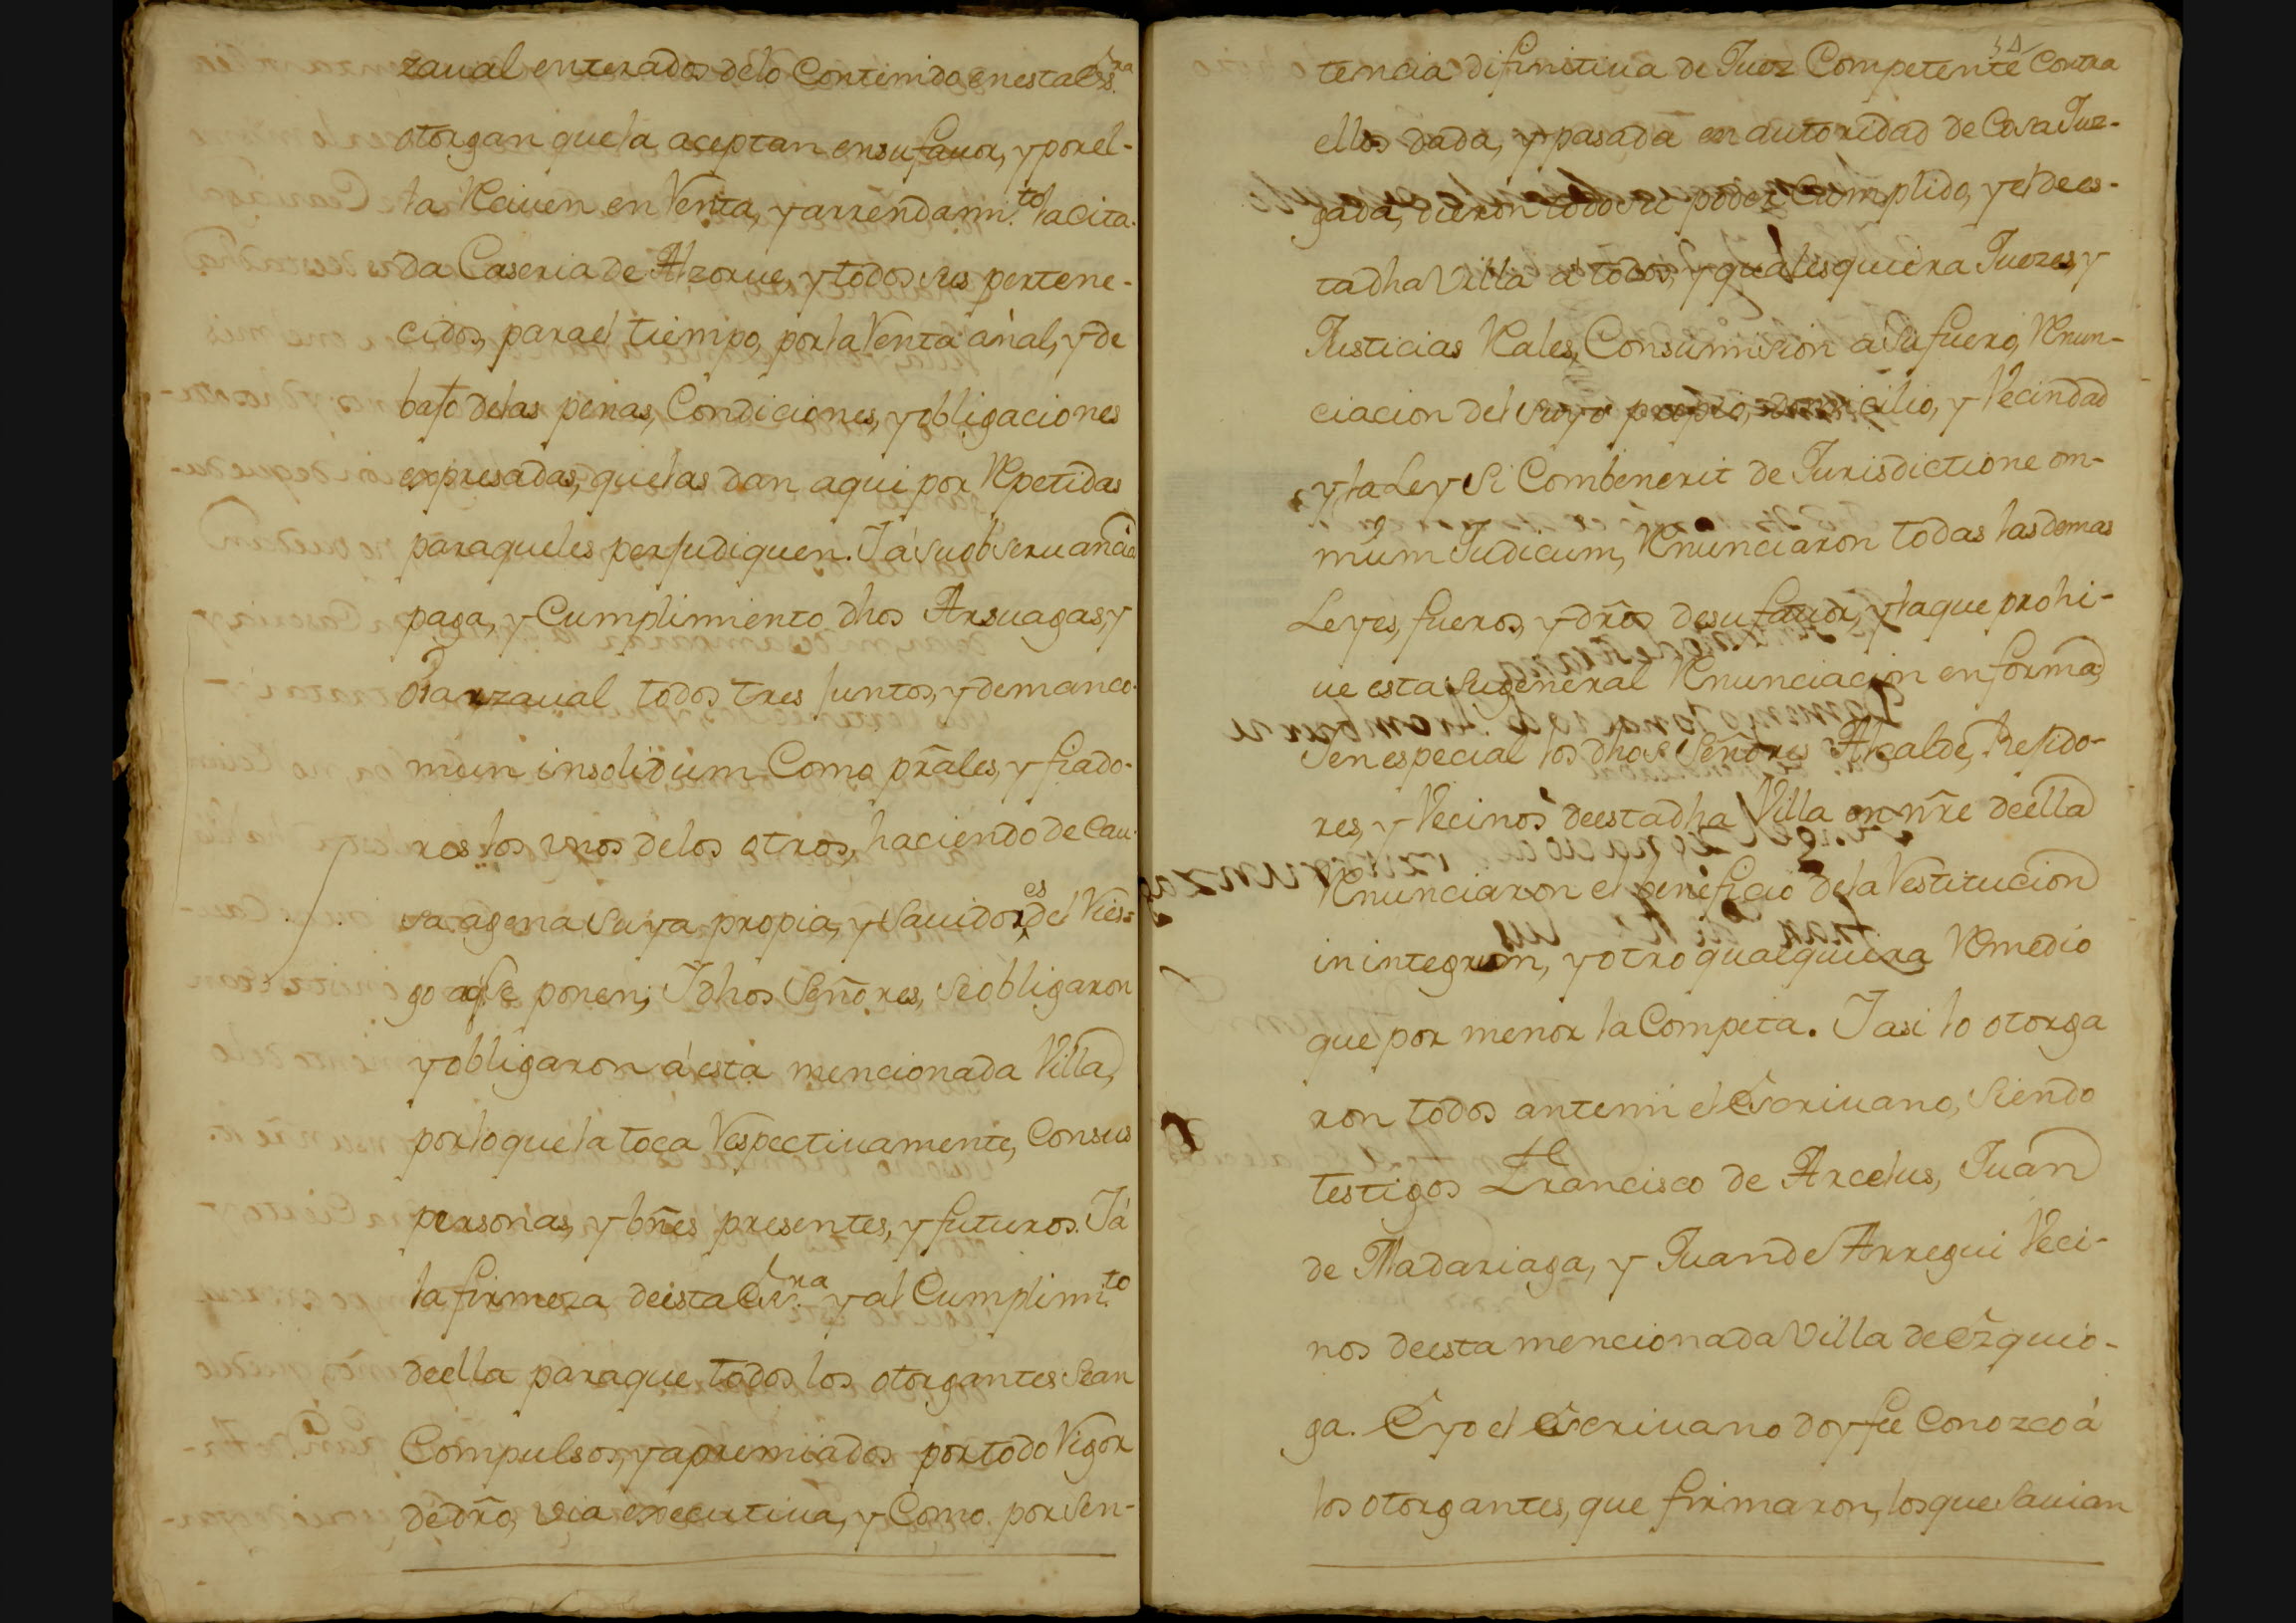 zaual enterados delo Contenido en esta Es.ra
otorgan que la aceptan en su fauor, y por el-
la Reciuen en Venta, y arrendami.to la cita-
da Caseria de Alzorue, y todos sus pertene-
cidos, para el tiempo, por la Venta anal, y de
bajo de las penas, Condiciones, y obligaciones
expresadas, que las dan aqui por Repetidas
para que les perjudiquen. I á su obseruancia
paga, y Cumplimiento dhos Arsuagas, y
Oiarzaual todos tres juntos, y de manco-
mun insolidum Como prãles, y fiado-
res los vnos de los otros, haciendo de Cau-
sa agena suya propia, y sauidores del Ries-
go aq̃ se ponen; I dhos Señores, se obligaron
y obligaron á esta mencionada Villa,
por lo que la toca Respectiuamente, Con sus
personas, y bñes presentes, y futuros. I á
la firmeza de esta Es.ra y al Cumplimi.to
de ella para que todos los otorgantes sean
Compulsos, y apremiados por todo Rigor
de drõ, via executiua, y Como por sen-
tencia difinitiua de Juez Competente Contra
ellos dada, y pasada en autoridad de Cosa Juz-
gada, dieron todo su poder Cumplido, y el de es-
ta dha Villa a todos, y qualesquiera Juezes, y
Justicias Rales, Con sumision a su fuero, Renun-
ciacion del suyo propio, domicilio, y Vecindad
y la Ley Si Combenerit de Jurisdictione om-
nium Judicum, Renunciaron todas las demas
Leyes, fueros, y drõs de su fauor, y la que prohi-
ue esta su general Renunciacion en forma,
I en especial los dhos Señores Alcalde, Rejido-
res, y Vecinos de esta dha Villa en nr̃e de ella
Renunciaron el beneficio de la Restitucion
in integrum, y otro qualquiera Remedio
que por menor la Competa. I asi lo otorga
ron todos ante mi el Escriuano, siendo
testigos Francisco de Arcelus, Juan
de Madariaga, y Juan de Arregui Veci-
nos de esta mencionada Villa de Ezquio-
ga. E yo el Escriuano doy fee Conozco á
los otorgantes, que firmaron, los que sauian